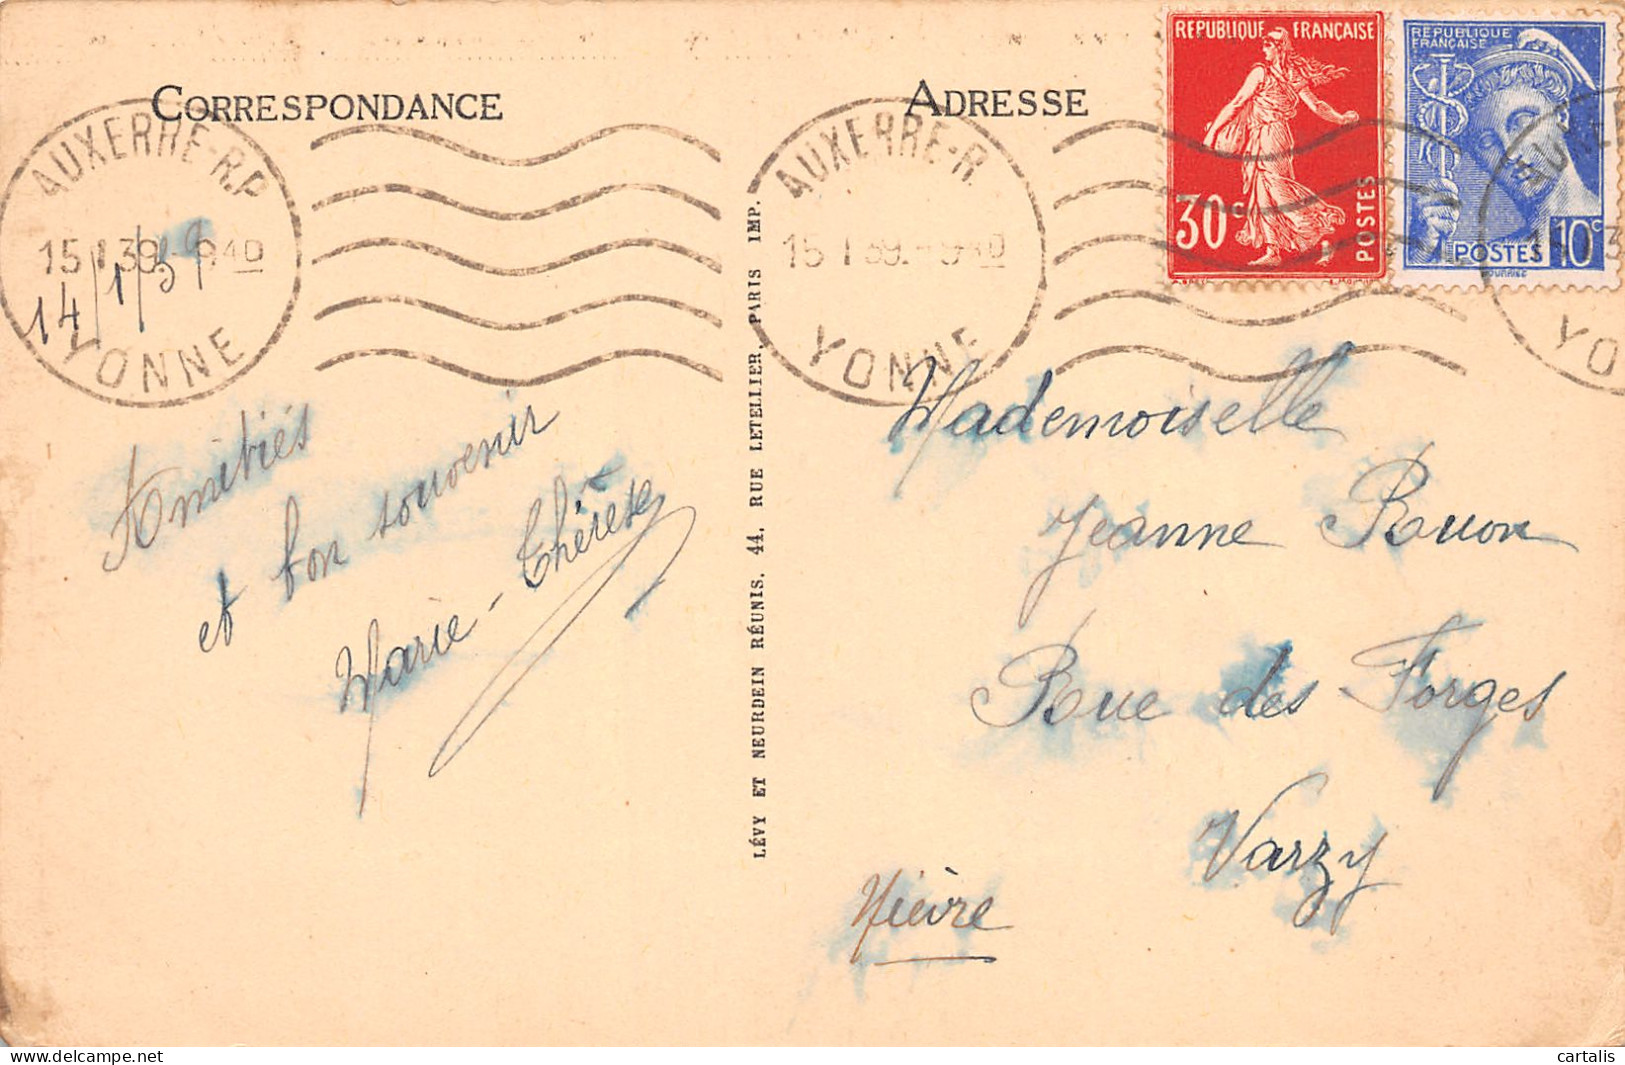 CORRESPONDANCE
AUXERRE-R.P
15 I 39 - 940
YONNE
14/1/39
Amitiés
et bon souvenir
Marie-Thérèse
LÉVY ET NEURDEIN RÉUNIS, 44, RUE LETELLIER, PARIS IMP.
ADRESSE
AUXERRE-R.
15 I 39 - 940
YONNE
REPUBLIQUE FRANÇAISE
30c
POSTES
REPUBLIQUE
FRANÇAISE
POSTES 10c
Mademoiselle
Jeanne Buon
Rue des Forges
Varzy
Nièvre
cartalis